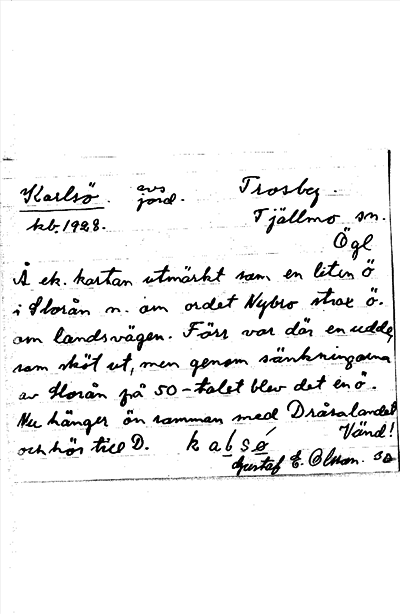 Karlsö. avs jord. Trosby.
kb. 1928. Tjällmo sn.
Ögl
Å ek. kartan utmärkt som en liten ö
i Storån n. om ordet Nybro strax ö.
om landsvägen. Förr var där en udde,
som sköt ut, men genom sänkningarna
av Storån på 50-talet blev det en ö.
Nu hänger ön samman med Dråsalandet
och hör till D. Vänd!
Gustaf E. Olsson.